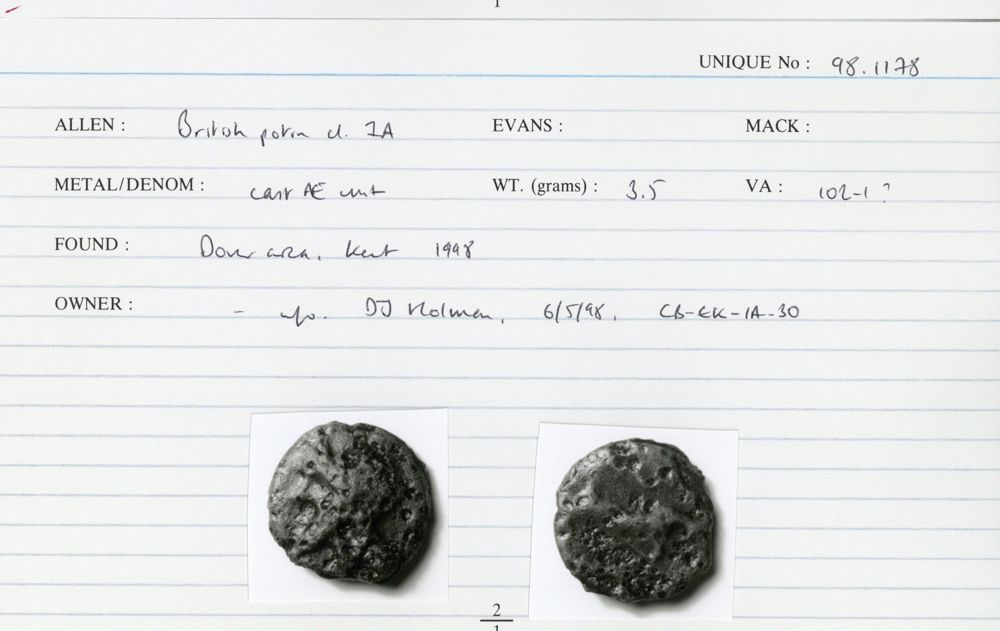 1
UNIQUE No : 98.1178
ALLEN : British potin cl. IA EVANS : MACK :
METAL/DENOM : cast AE unit WT. (grams) : 3.5 VA : 102-1 ?
FOUND : Dover area, Kent 1998
OWNER : - info. DJ Holman, 6/5/98, CB-EK-IA-30
2
1